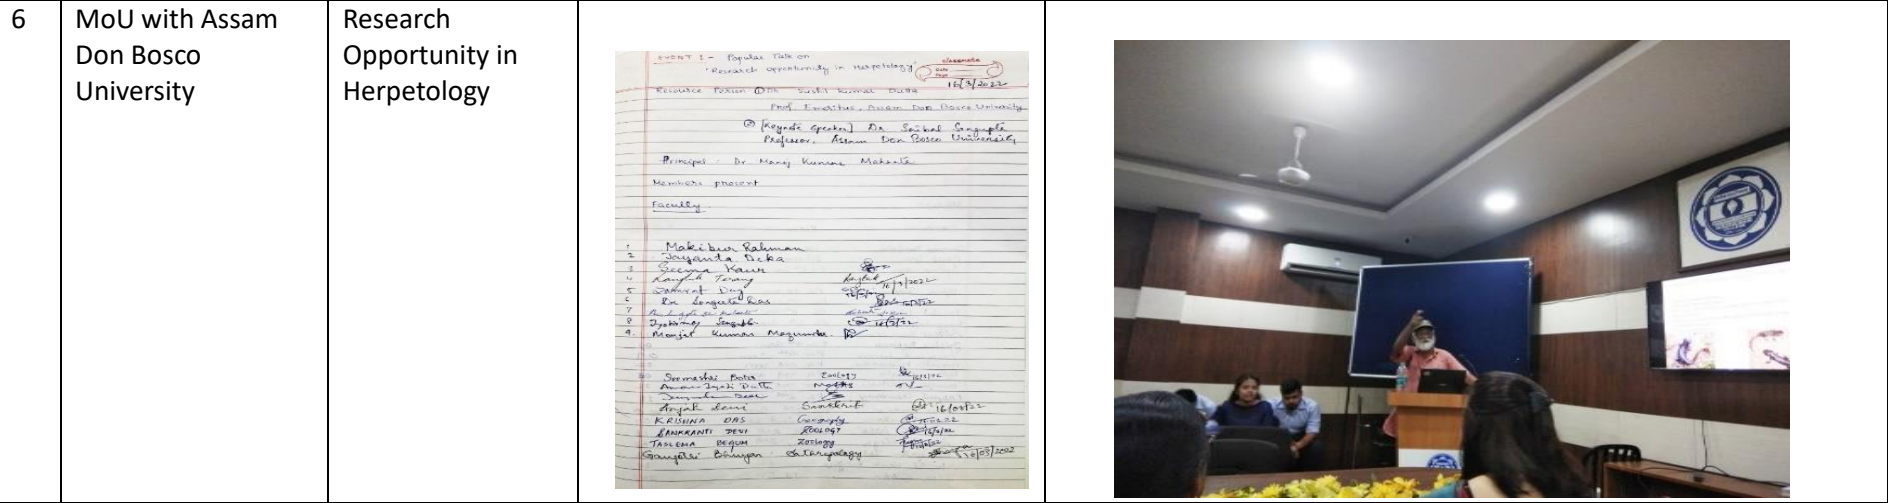 6
MoU with Assam
Don Bosco
University
Research
Opportunity in
Herpetology
EVENT 1 - Popular Talk on
"Research opportunity in Herpetology"
classmate
Date
Page
16/3/2022
Resource Person ① Dr Sushil Kumar Dutta
Prof. Emeritus, Assam Don Bosco University
② [Keynote speaker] Dr Saibal Sengupta
Professor, Assam Don Bosco University
Principal: Dr Manoj Kumar Mahanta
Members present
Faculty
1 Makibur Rahman
2 Jayanta Deka
3 Seema Kaur
4 16/3/2022
5
6 Dr Sangeeta Das
7
8 16/3/22
9. Monjit Kumar Mazumdar
Zoology
Dutta Maths
Devi Sanskrit 16/03/22
KRISHNA DAS Geography
SANKRANTI DEVI ZOOLOGY
TASLEMA BEGUM Zoology
Bhuyan Anthropology 16/03/2022